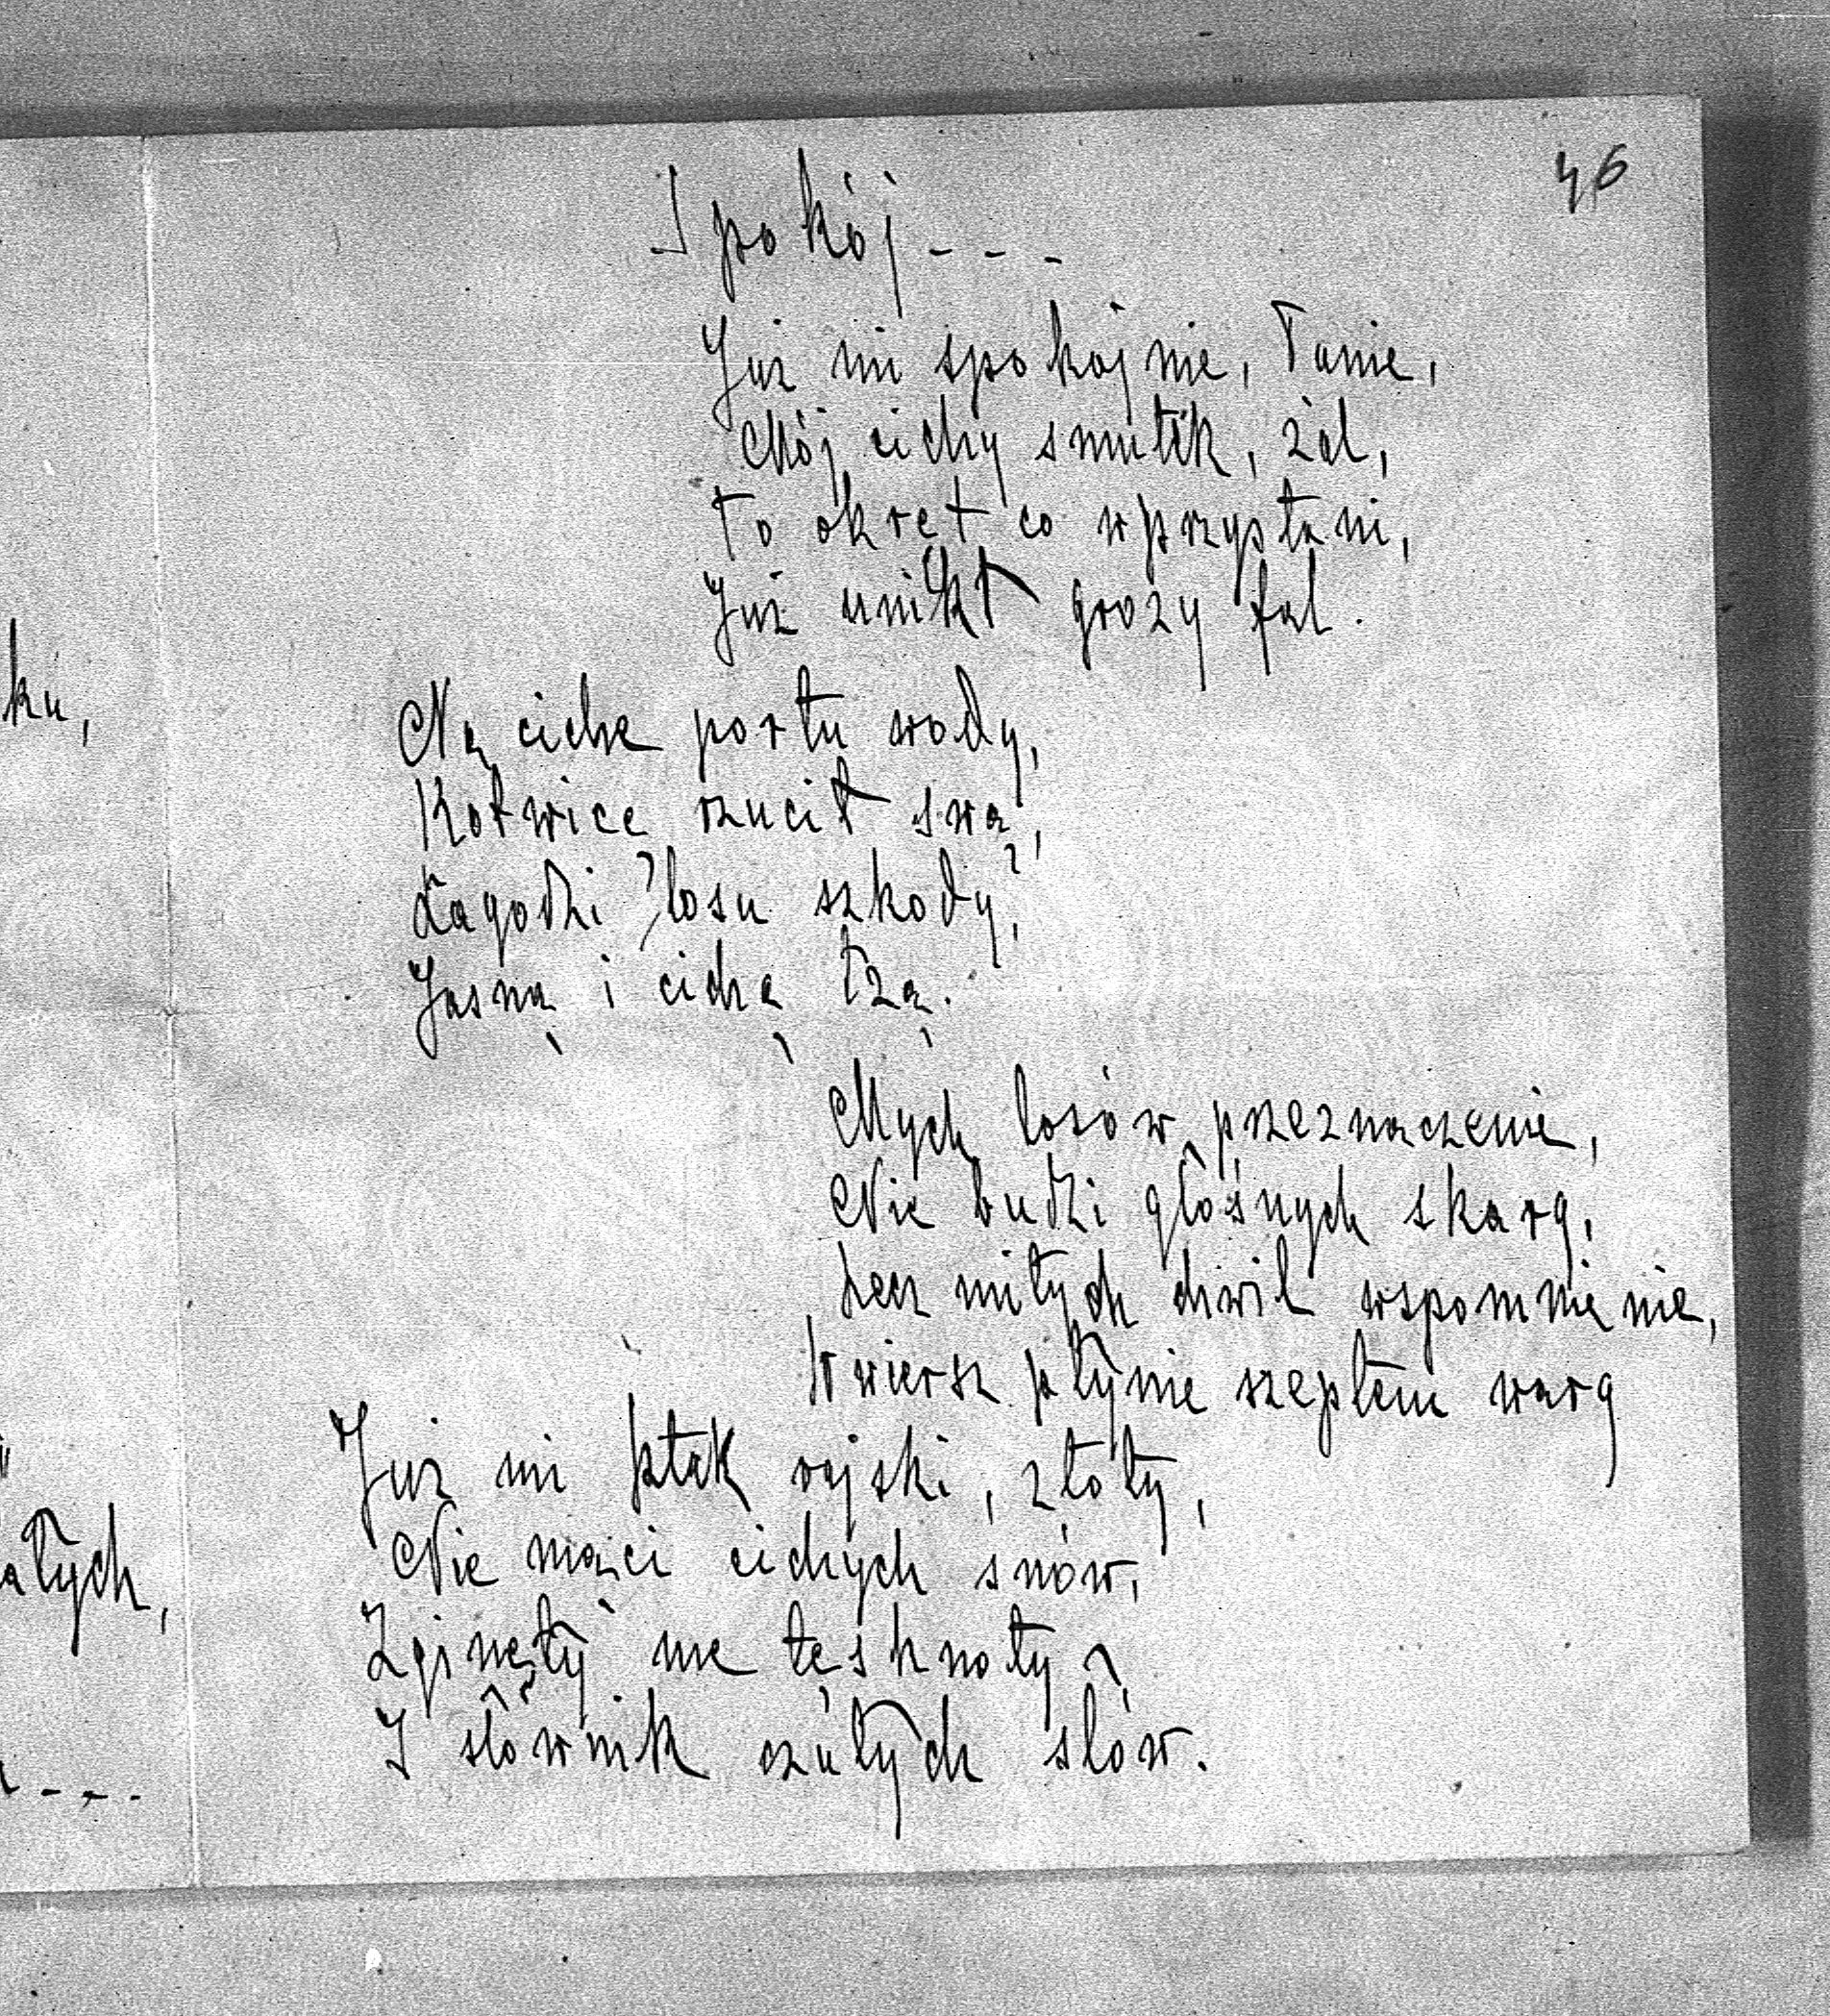 46
Spokój - - -
Już mi spokojnie, Panie,
Mój cichy smutek, żal,
To okręt co w przystani,
Już unikł grozy fal.
Na ciche portu wody,
Kotwicę rzucił swą,
Łagodzi losu szkody,
Jasną i cichą łzą.
Mych losów przeznaczenie,
Nie budzi głośnych skarg,
Lecz miłych chwil wspomnienie,
W wiersz płynie szeptem warg
Już mi ptak rajski, złoty,
Nie mąci cichych snów,
Zginęły me tęsknoty
I słownik czułych słów.
ku,
ałych,
- - -